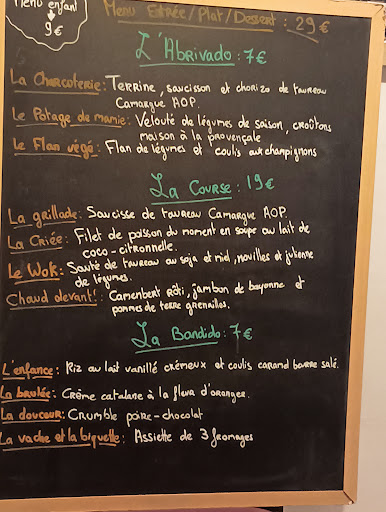 Menu enfant
9€
Menu Entrée/Plat/Dessert : 29€
L'Abrivado : 7€
La Charcoterie : Terrine, saucisson et chorizo de taureau
Camargue AOP.
Le Potage de mamie : Velouté de légumes de saison, croûtons
maison à la provençale
Le Flan végé : Flan de légumes et coulis aux champignons
La Course : 19€
La grillade : Saucisse de taureau Camargue AOP.
La Criée : Filet de poisson du moment en soupe au lait de
coco-citronnelle.
Le Wok : Sauté de taureau au soja et miel, nouilles et julienne
de légumes.
Chaud devant! : Camembert Rôti, jambon de bayonne et
pommes de terre grenailles.
La Bandido : 7€
L'enfance : Riz au lait vanillé crémeux et coulis caramel beurre salé.
La brulée : Crème catalane à la fleur d'oranger.
La douceur : Crumble poire-chocolat
La vache et la biquette : Assiette de 3 fromages